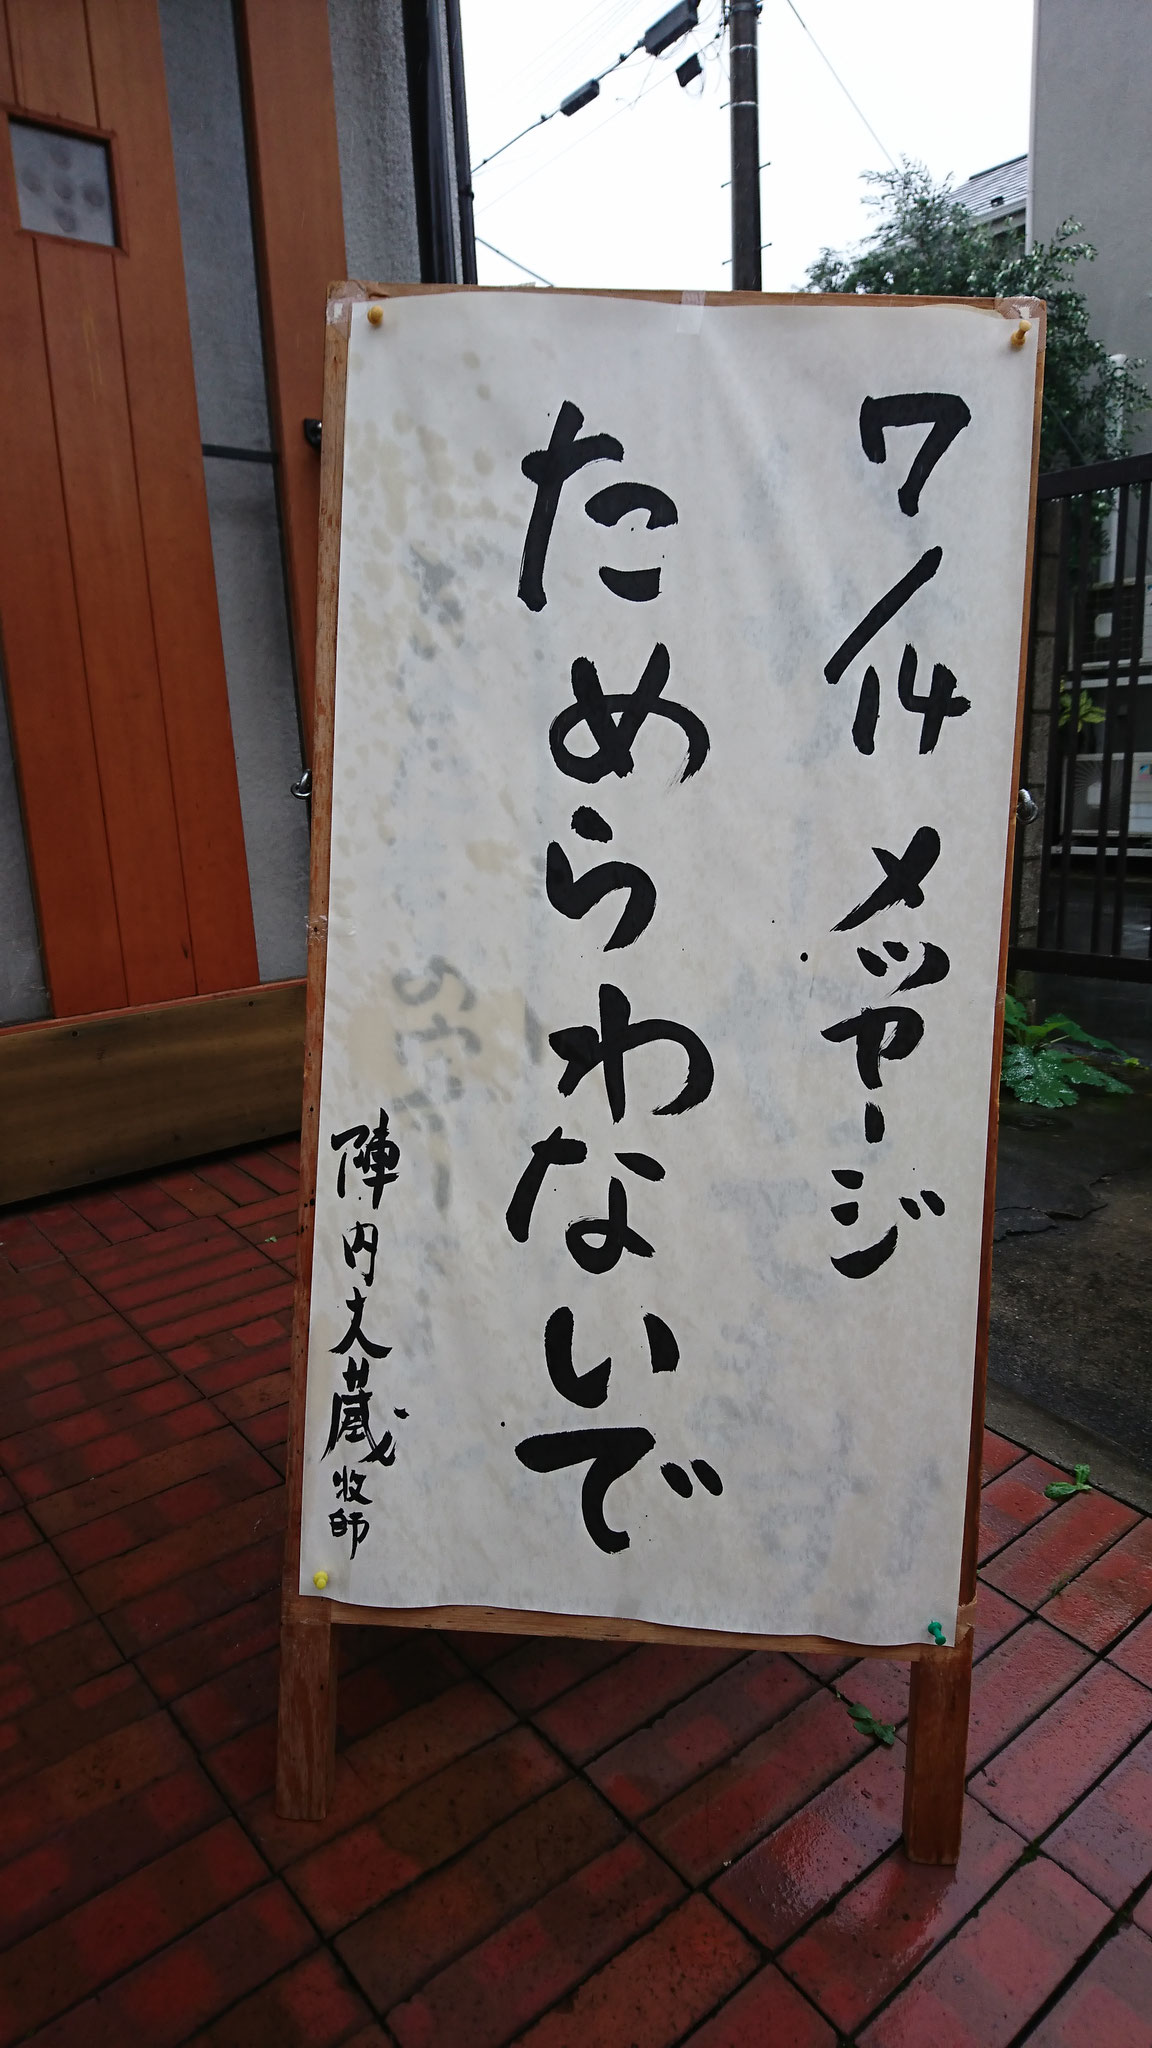 7/14 メッセージ
ためらわないで
陣内大蔵牧師